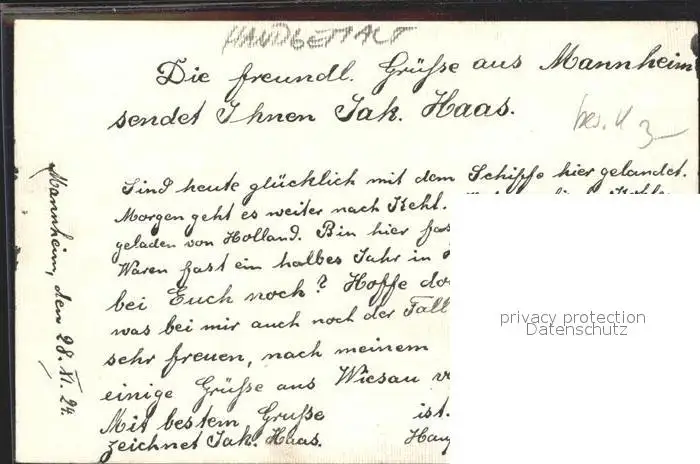 HANDGEMALT
Die freundl. Grüße aus Mannheim
sendet Ihnen Jak. Haas.
bes. U
Sind heute glücklich mit dem Schiffe hier gelandet.
Morgen geht es weiter nach Kehl.
geladen von Holland. Bin hier
Waren fast ein halbes Jahr in
bei Euch noch? Hoffe
was bei mir auch noch der Fall
sehr freuen, nach meinem
einige Grüße aus Wiesau
Mit bestem Gruße ist.
zeichnet Jak. Haas.
Mannheim, den 28. XI. 24.
privacy protection
Datenschutz